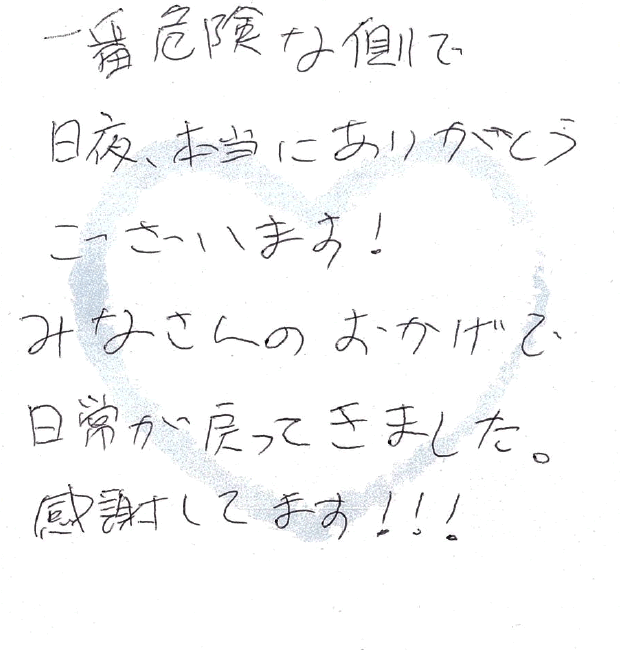 一番危険な側で
日夜、本当にありがとう
ございます!
みなさんのおかげで
日常が戻ってきました。
感謝してます!!!